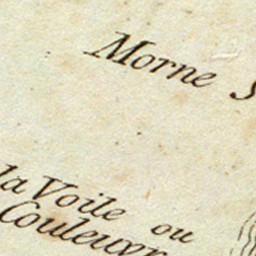 Morne S
la Voile ou
Couleuvr